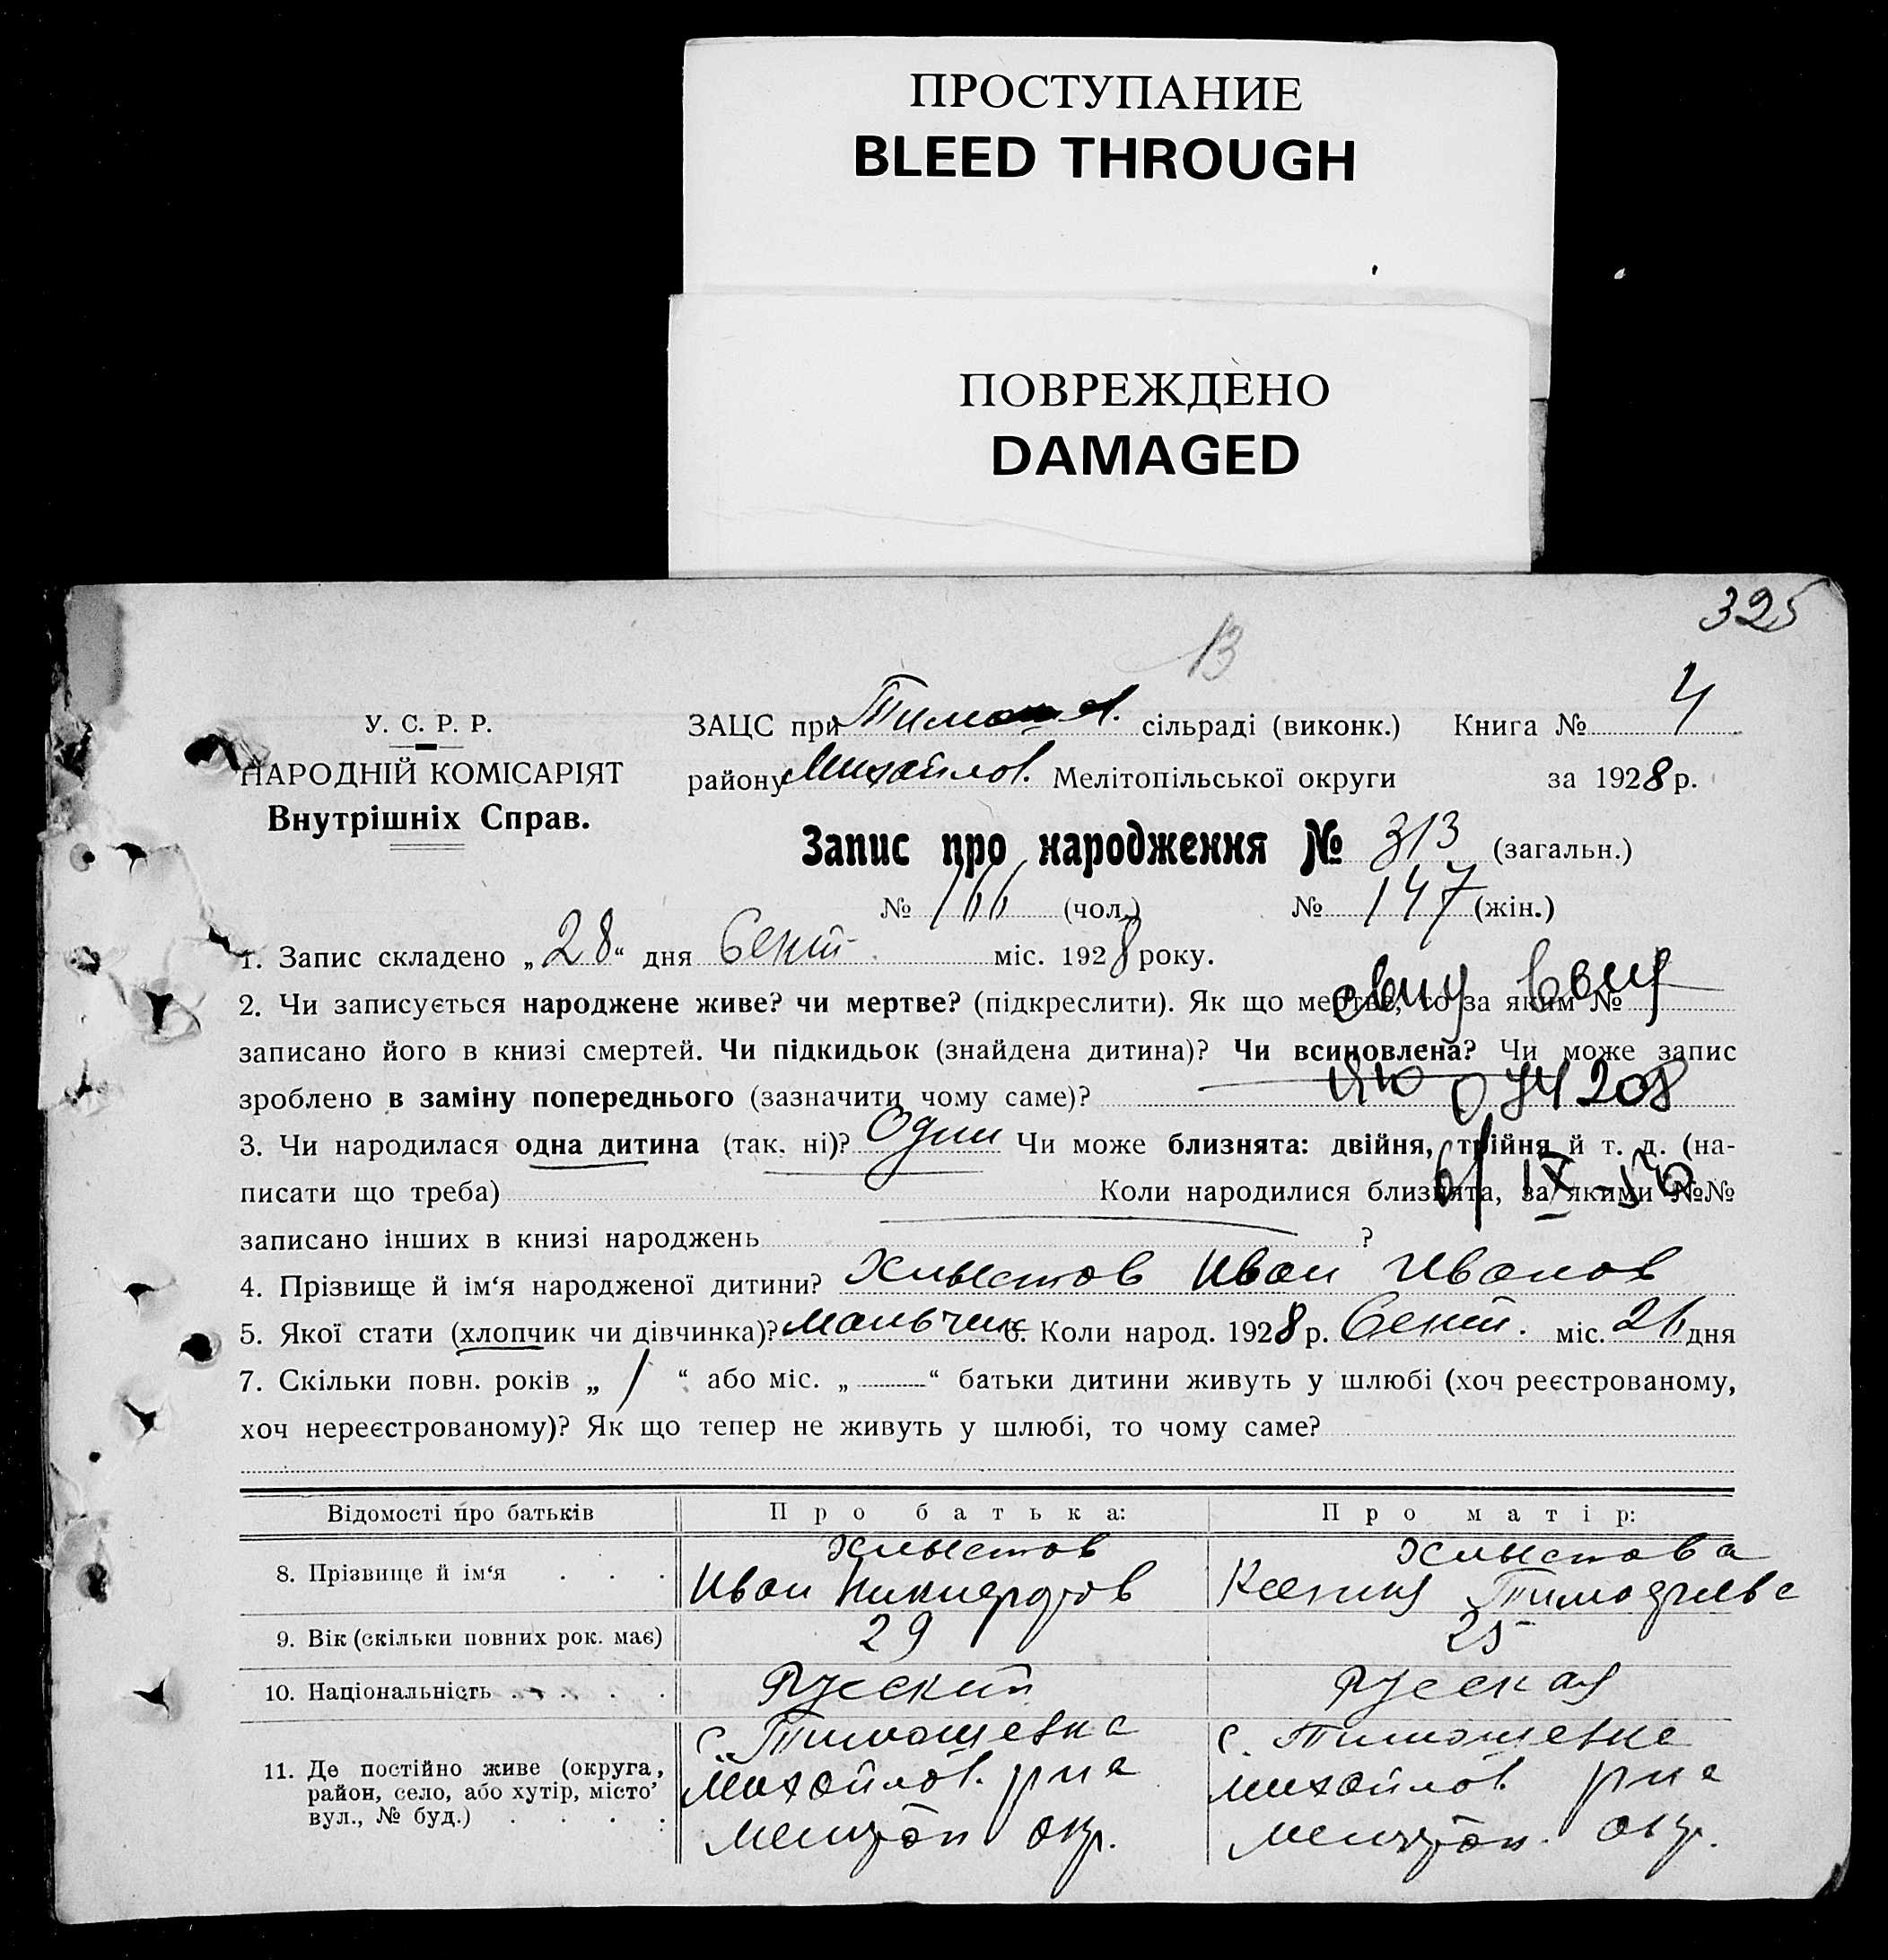 ПРОСТУПАНИЕ
BLEED THROUGH
ПОВРЕЖДЕНО
DAMAGED
325
13
У. С. Р. Р.
НАРОДНІЙ КОМІСАРІЯТ
Внутрішніх Справ.
ЗАЦС при сільраді (виконк.) Книга № 4
району Михайлов. Мелітопільської округи за 1928 р.
Запис про народження № 313 (загальн.)
№ 166 (чол.) № 147 (жін.)
1. Запис складено „28“ дня Сент. міс. 1928 року.
2. Чи записується народжене живе? чи мертве? (підкреслити). Як що мертве, то за яким №
записано його в книзі смертей. Чи підкидьок (знайдена дитина)? Чи всиновлена? Чи може запис
зроблено в заміну попереднього (зазначити чому саме)?
3. Чи народилася одна дитина (так, ні)? Один Чи може близнята: двійня, трійня й т. д. (на-
писати що треба) Коли народилися близнята, за якими №№
записано інших в книзі народжень ?
4. Прізвище й ім‘я народженої дитини? Хлыстов Иван Иванов
5. Якої стати (хлопчик чи дівчинка)? мальчик 6. Коли народ. 1928 р. Сент. міс. 21 дня
7. Скільки повн. років „ 1 “ або міс. „ — “ батьки дитини живуть у шлюбі (хоч реєстрованому,
хоч нереєстрованому)? Як що тепер не живуть у шлюбі, то чому саме?
Відомості про батьків Про батька: Про матір:
8. Прізвище й ім‘я . . . Хлыстов Иван Хлыстова Ксения
9. Вік (скільки повних рок. має) 29 25
10. Національність . . . . . Русский Русская
11. Де постійно живе (округа,
район, село, або хутір, місто,
вул., № буд.) . . . .
с. Тимошевка
Михайлов. р-на
Мелитоп окр.
с. Тимошевка
Михайлов р-на
Мелитоп. окр.